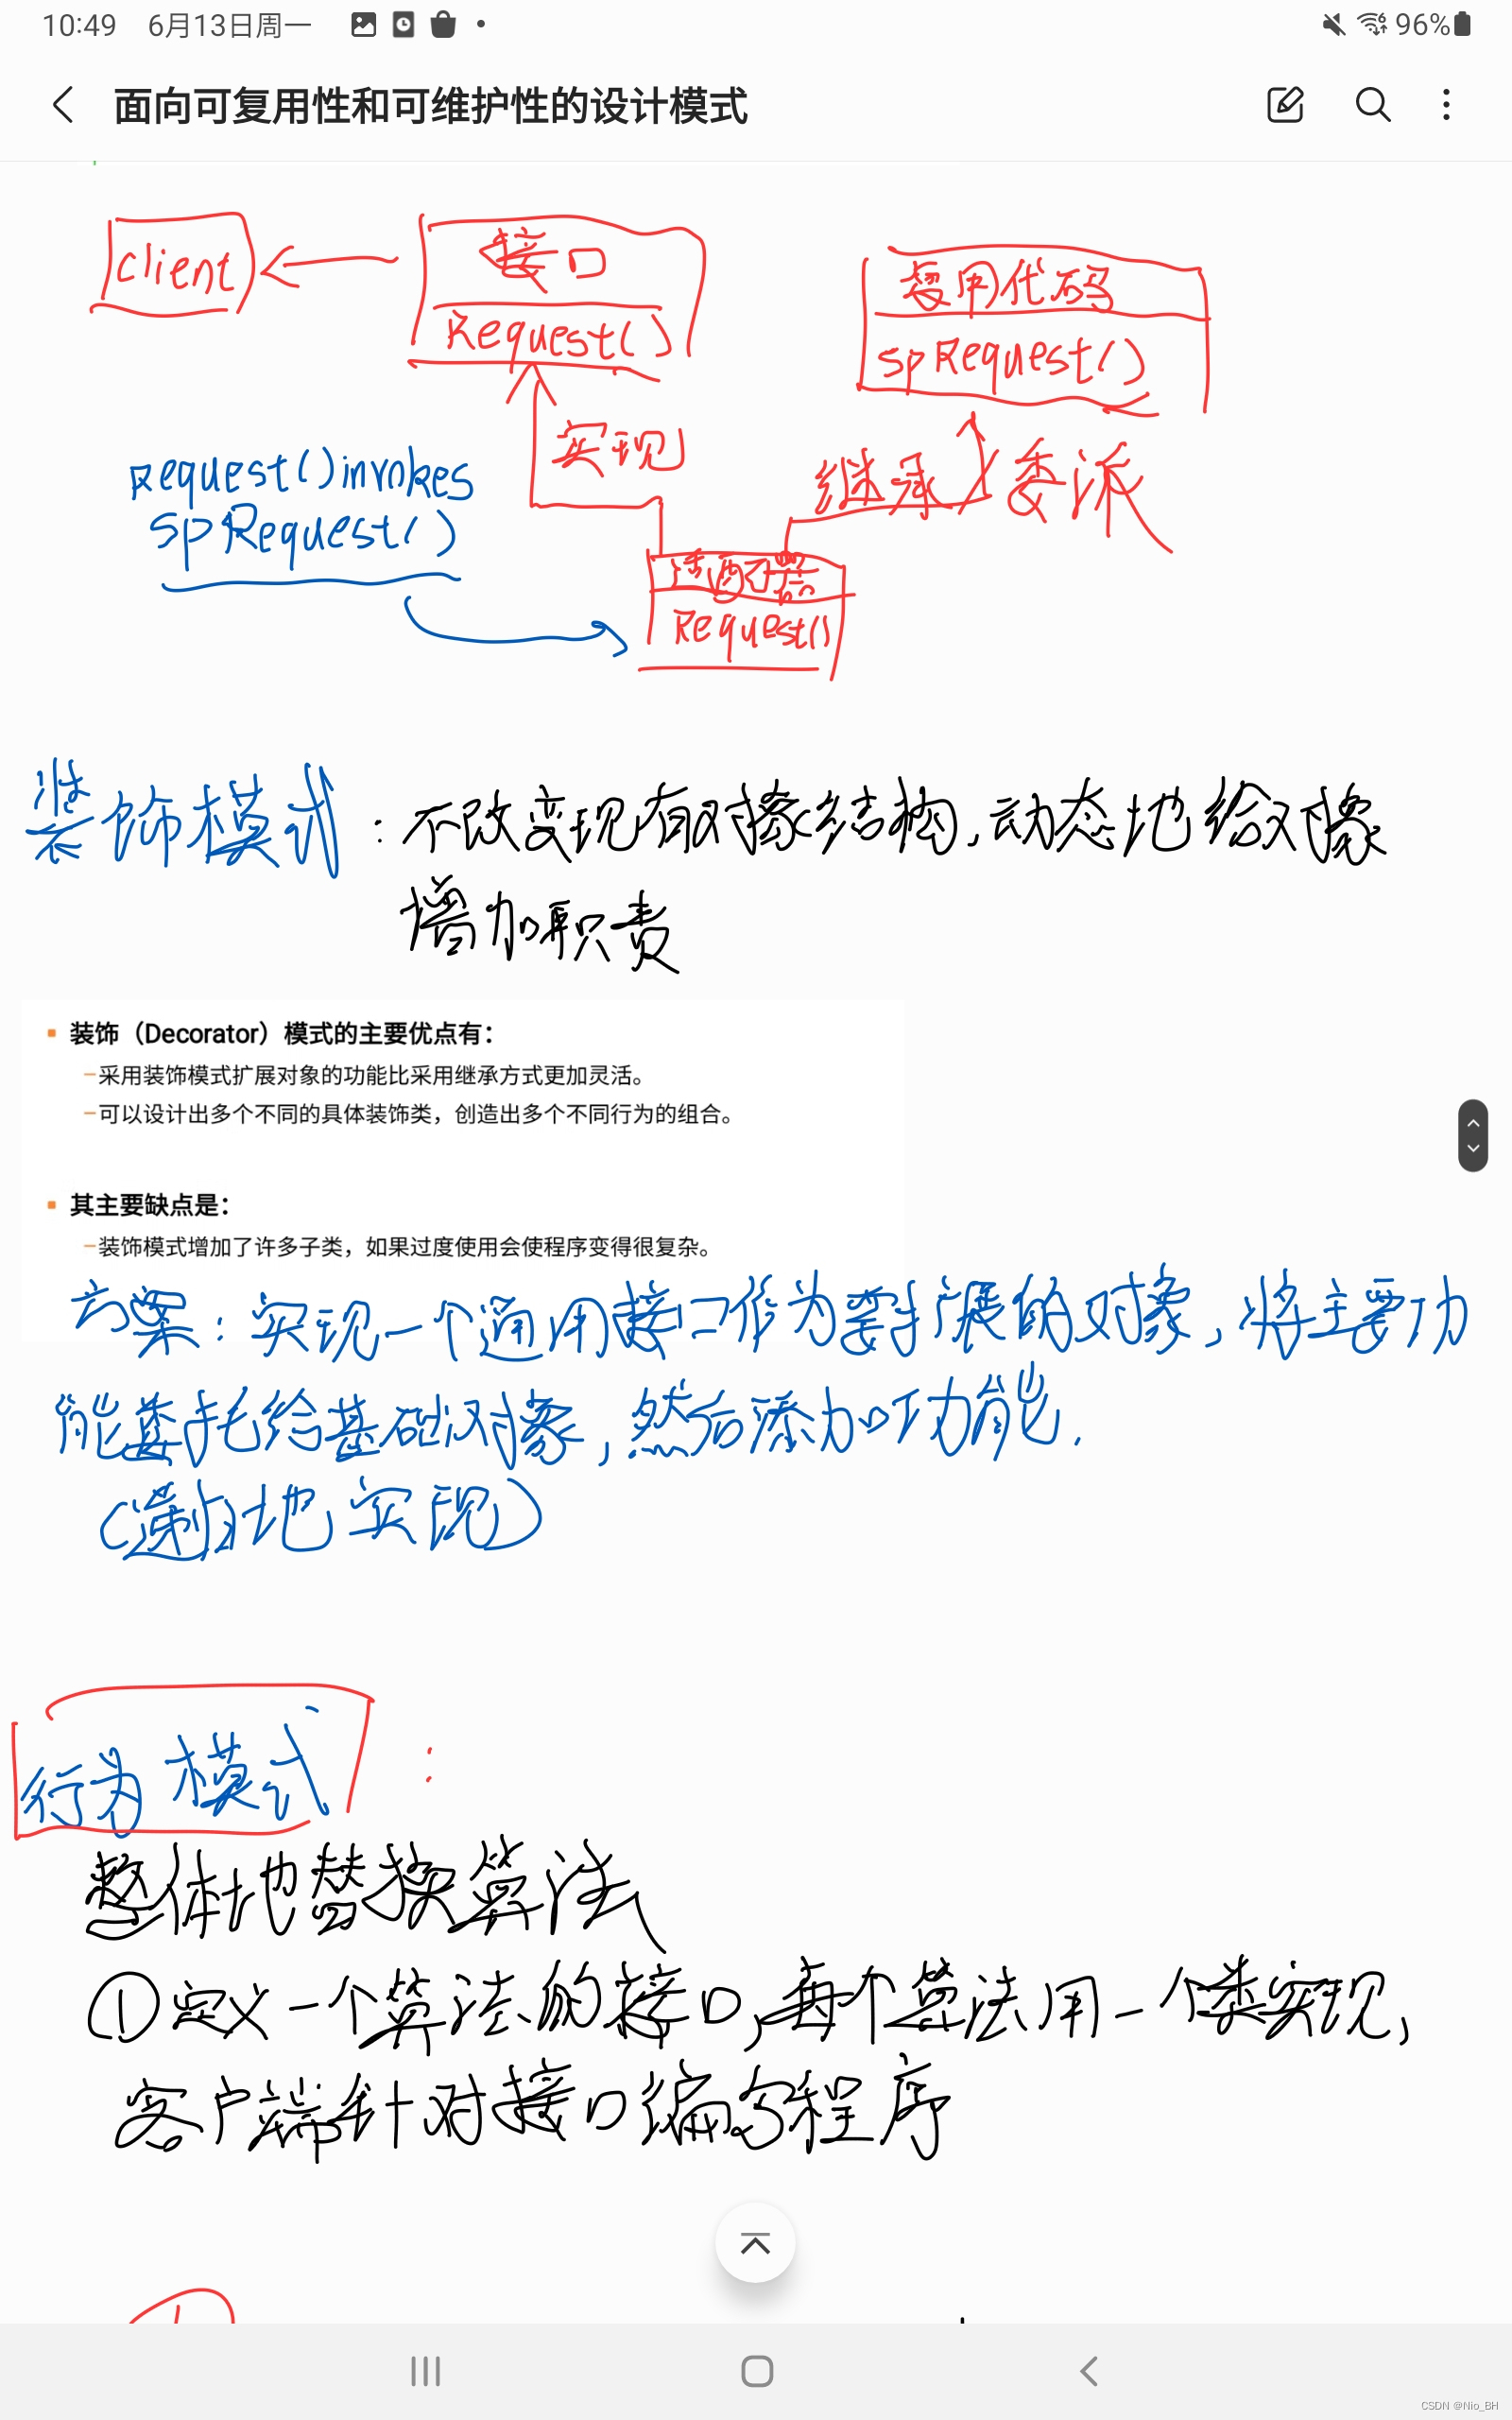 10:49 6月13日周一 96%
面向可复用性和可维护性的设计模式
client
接口
Request()
复用代码
spRequest()
实现
继承/委派
request()invokes
spRequest()
适配器
Request()
装饰模式:不改变现有对象结构,动态地给对象
增加职责
装饰（Decorator）模式的主要优点有：
–采用装饰模式扩展对象的功能比采用继承方式更加灵活。
–可以设计出多个不同的具体装饰类，创造出多个不同行为的组合。
其主要缺点是：
–装饰模式增加了许多子类，如果过度使用会使程序变得很复杂。
方案:实现一个通用接口作为要扩展的对象,将主要功
能委托给基础对象,然后添加功能.
(递归地实现)
行为模式:
整体地替换算法
①定义一个算法的接口,每个算法用一个类实现,
客户端针对接口编写程序
CSDN @Nio_BH